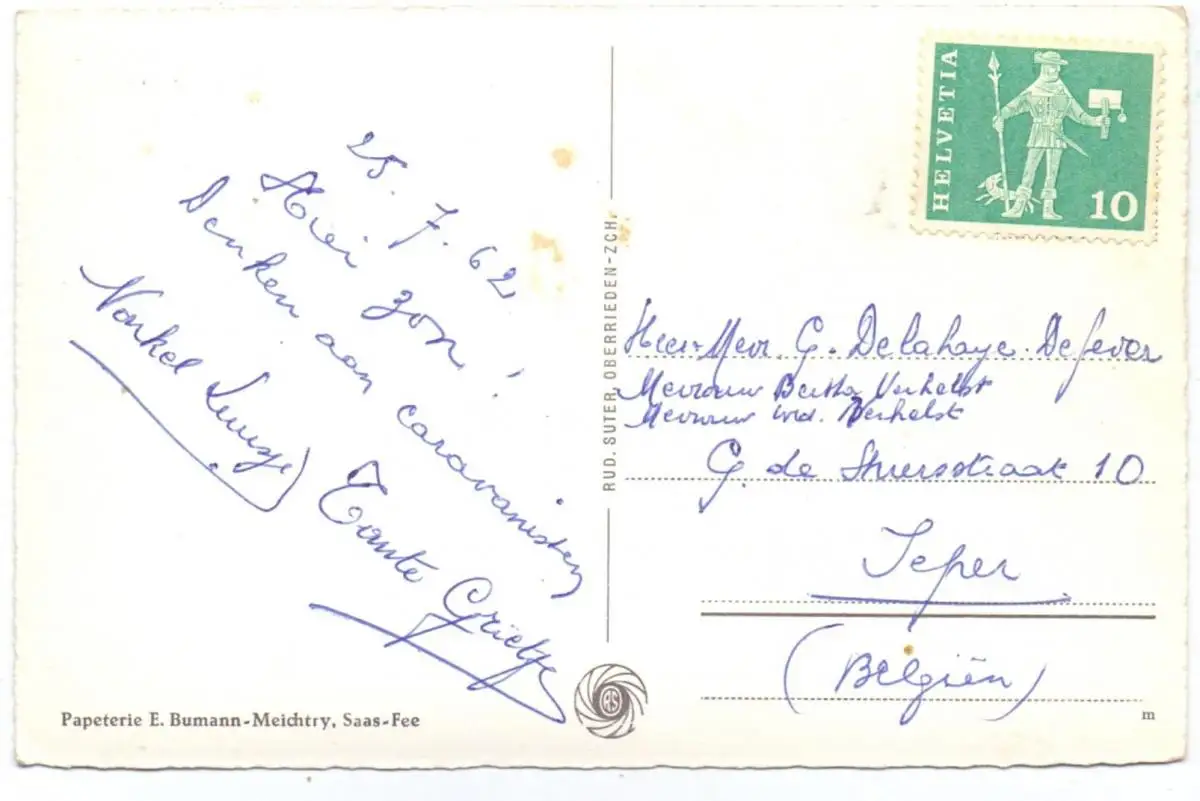 25.7.62
Hier zon!
Denken aan caravanisten
Nonkel
Tante Grietje
Papeterie E. Bumann-Meichtry, Saas-Fee
RUD. SUTER, OBERRIEDEN-ZCH.
RS
HELVETIA
10
Heer Mevr. G. Delahaye-Defever
Mevrouw Bertha Verhelst
Mevrouw wed. Verhelst
G. de Stuersstraat 10
Ieper
(Belgiën)
m